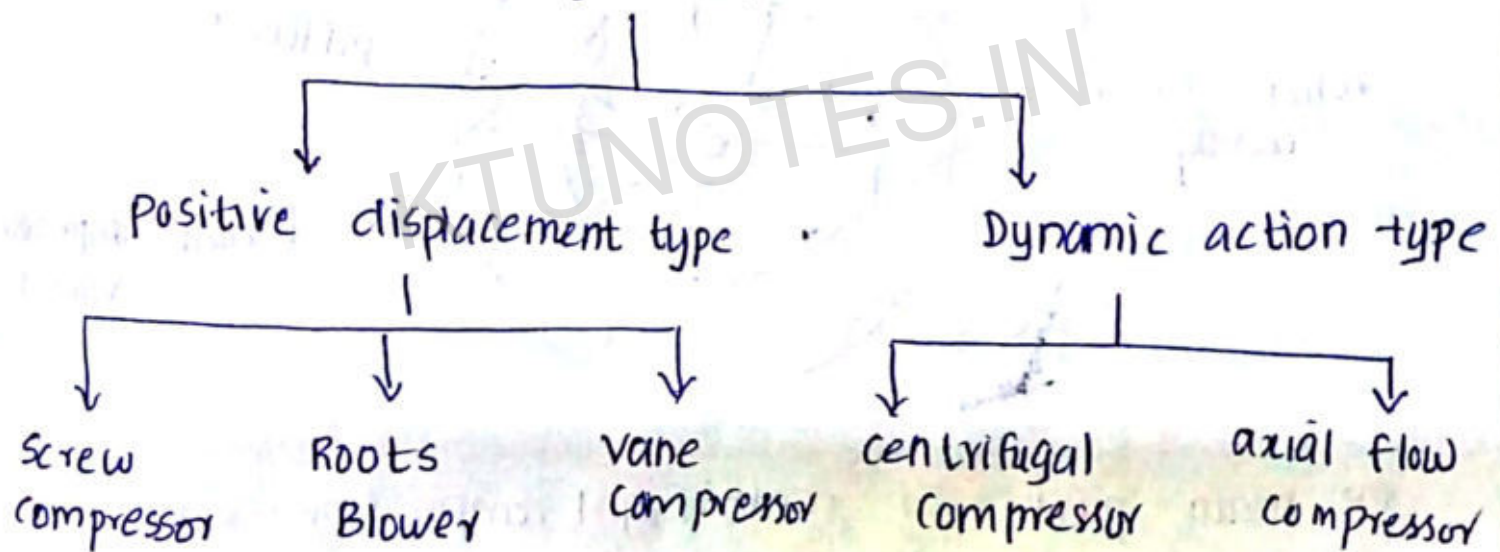 KTUNOTES.IN
Positive displacement type
Dynamic action type
Screw
compressor
Roots
Blower
Vane
compressor
centrifugal
compressor
axial flow
compressor